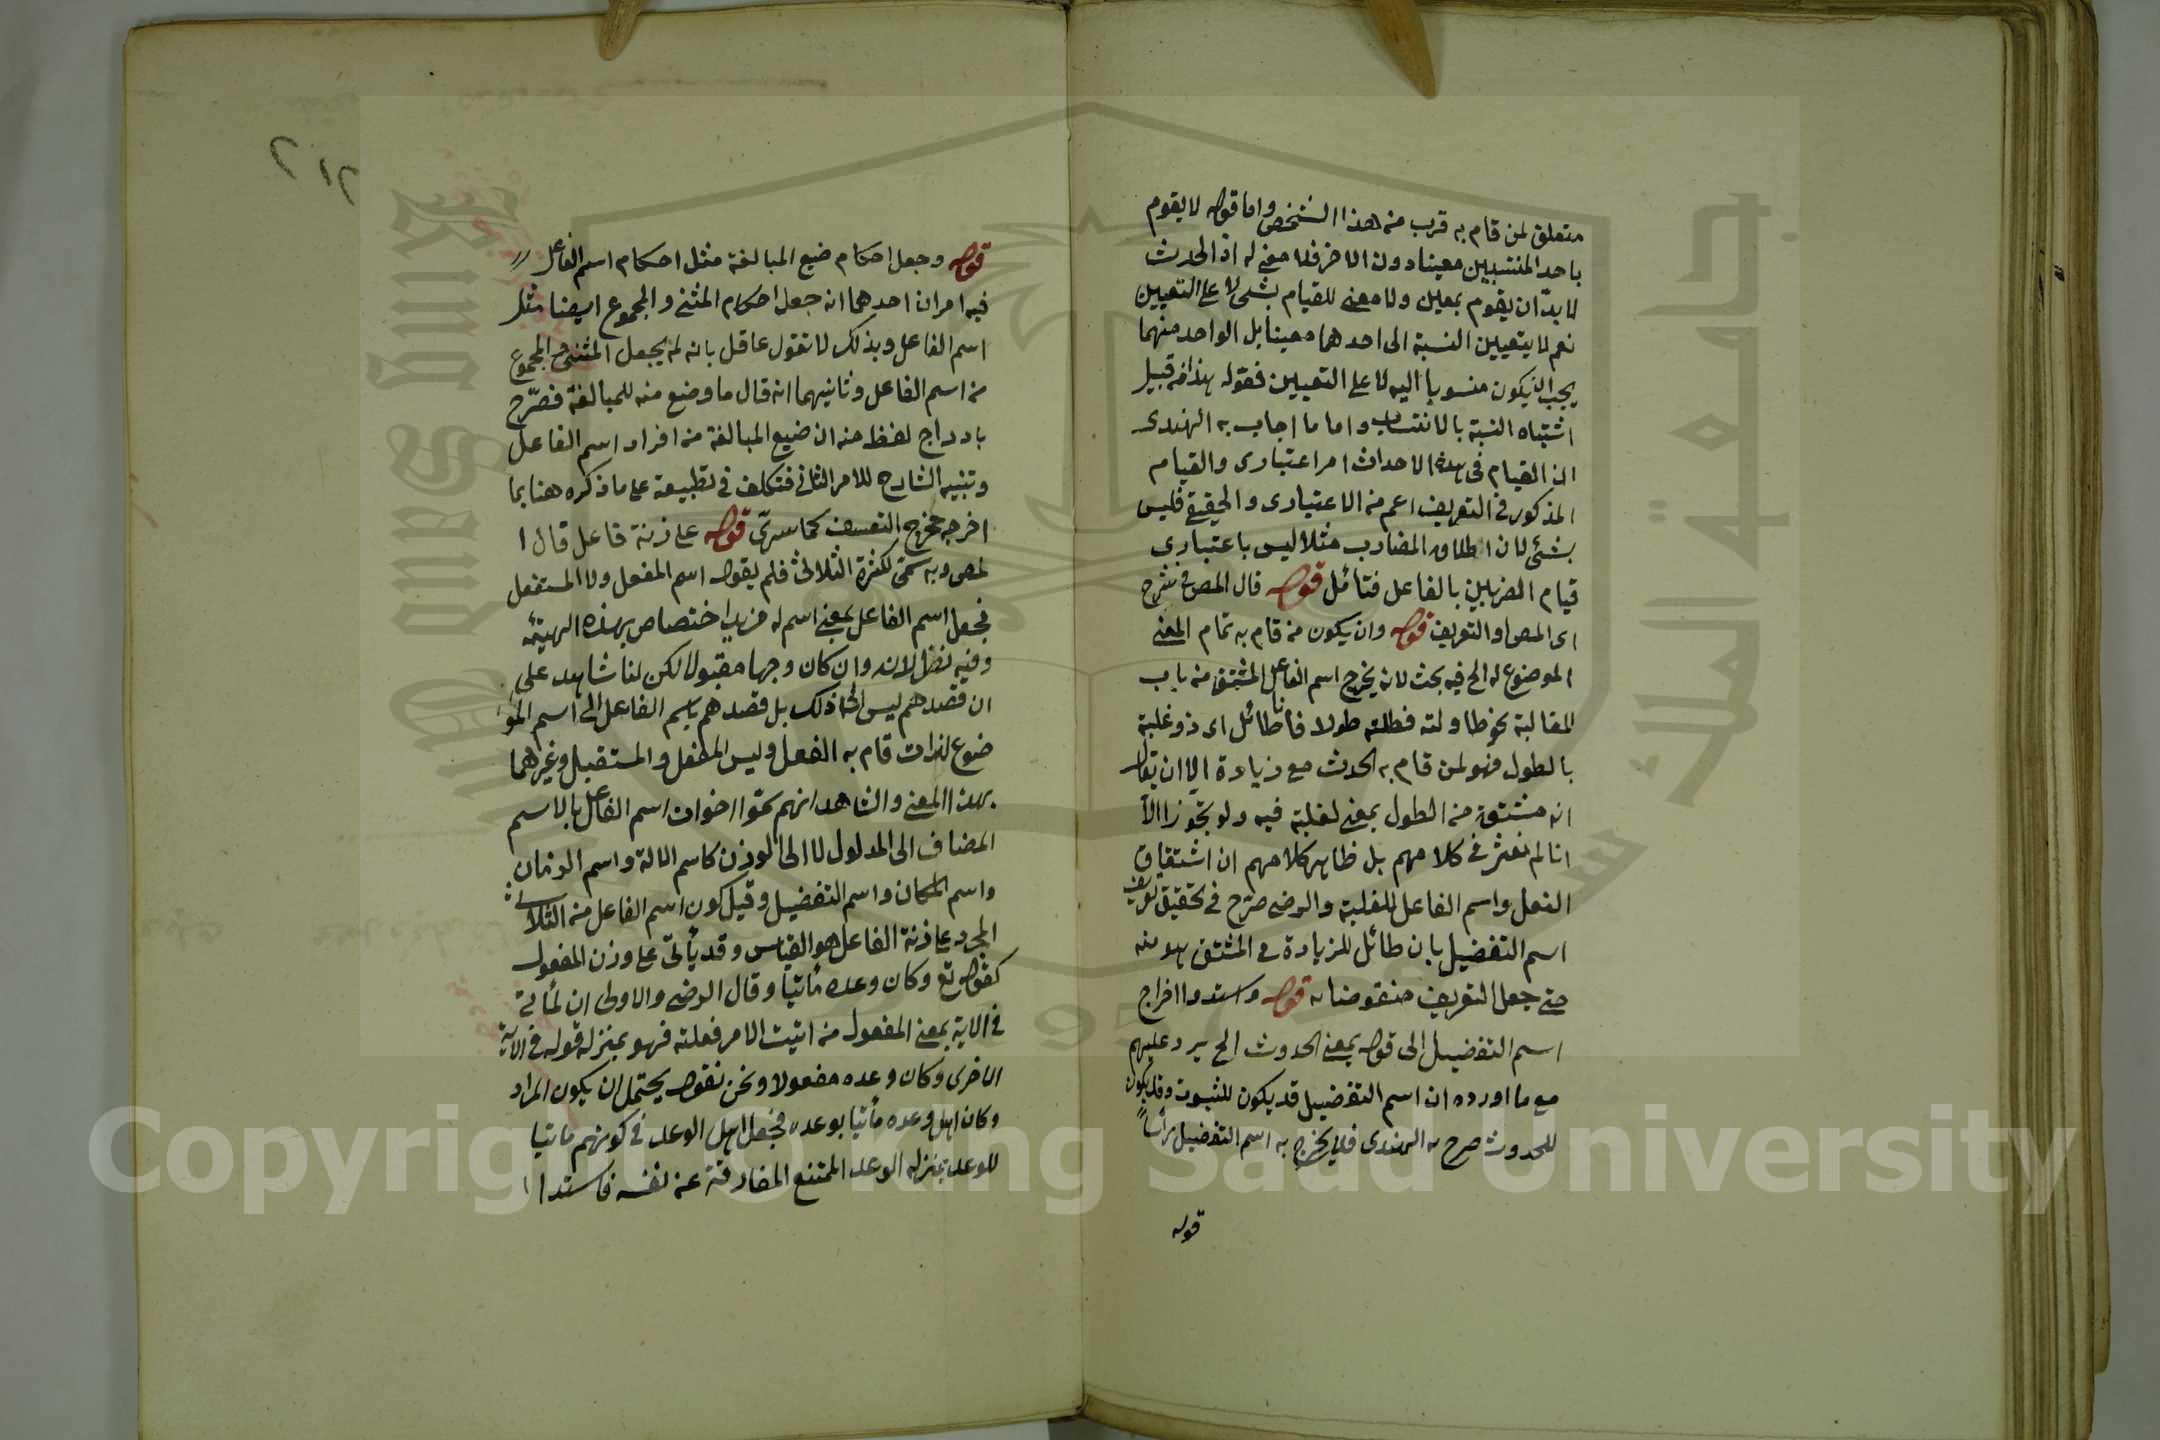 متعلق لمن قام به قرب من هذا الشخص واما قوله لا يقوم
باحد المنتسبين معينا دون الاخر فلا معنى له اذ الحدث
لا بد ان يقوم بمعين ولا معنى للقيام بشئ لا على التعيين
نعم لا يتعيين النسبة الى احدهما معينا بل الواحد منهما
يجب ان يكون منسوبا اليه لا على التعيين فقوله هذا من قبيل
اشتباه النسبة بالانتساب واما ما اجاب به الهندى
ان القيام فى هذه الاحداث امر اعتبارى والقيام
المذكور فى التعريف اعم من الاعتبارى والحقيقى فليس
بشئ لان اطلاق المضارب مثلا ليس باعتبارى
قيام الضربين بالفاعل فتأمل قوله قال المص فى شرح
اى المص او التعريف قوله وان يكون من قام به تمام المعنى
الموضوع له الخ فيه بحث لانه يخرج اسم الفاعل المشتق من باب
المغالبة نحو طاولته فطلته طولا فانا طائل اى ذو غلبة
بالطول فهو لمن قام به الحدث مع زيادة الا ان يقال
انه مشتق من الطول بمعنى لغلبة فيه ولو تجوزا الا
انا لم نعثر فى كلامهم بل ظاهر كلامهم ان اشتقاق
الفعل واسم الفاعل للغلبة والرضى صرح فى تحقيق تعريف
اسم التفضيل بان طائل للزيادة فى المشتق هو منه
حتى جعل التعريف منقوضا به قوله واسندوا اخراج
اسم التفضيل الى قوله بمعنى الحدوث الخ يرد عليهم
مع ما اورده ان اسم التفضيل قد يكون للثبوت وقد يكون
للحدوث صرح به الهندى فلا يخرج به اسم التفضيل رأسا
قوله
٢١٢
قوله وجعل احكام صيغ المبالغة مثل احكام اسم الفاعل
فيه امران احدهما انه جعل احكام المثنى والمجموع ايضا مثل
اسم الفاعل وبذلك لا تقول عاقل بانه لم يجعل المثنى والمجموع
من اسم الفاعل وثانيهما انه قال ما وضع منه للمبالغة فصرح
بادراج لفظ منه ان صيغ المبالغة من افراد اسم الفاعل
وتنبه الشارح للامر الثانى فتكلف فى تطبيقه على ما ذكره هنا بما
اخرجه مخرج التعسف كما سترى قوله على زنة فاعل قال ا
لمص وبه سمى لكثرة الثلاثى فلم يقولوا اسم المفعل ولا المستفعل
فجعل اسم الفاعل بمعنى اسم له مزيد اختصاص بهذه الهيئة
وفيه نظر لانه وان كان وجها مقبولا لكن لنا شاهد على
ان قصدهم ليس الى ذلك بل قصدهم باسم الفاعل الى اسم المو
ضوع لذات قام به الفعل وليس المفعل والمستقبل وغيرهما
بهذا المعنى والشاهد انهم سموا اخوات اسم الفاعل بالاسم
المضاف الى المدلول لا الى الوزن كاسم الالة واسم الزمان
واسم المكان واسم التفضيل وقيل كون اسم الفاعل من الثلاثى
المجرد على زنة الفاعل هو القياس وقد يأتى على وزن المفعول
كقوله تع وكان وعده مأتيا وقال الرضى والاولى ان المأتى
فى الاية بمعنى المفعول من اتيت الامر فعلته فهو بمنزلة قوله فى الاية
الاخرى وكان وعده مفعولا ونحن نقول يحتمل ان يكون المراد
وكان اهل وعده مأتيا بوعده فجعل اهل الوعد فى كونهم مأتيا
للوعد بمنزلة الوعد الممتنع المفارقة عن نفسه فاسند ا
جامعة الملك سعود
King Saud University
1957
Copyright © King Saud University